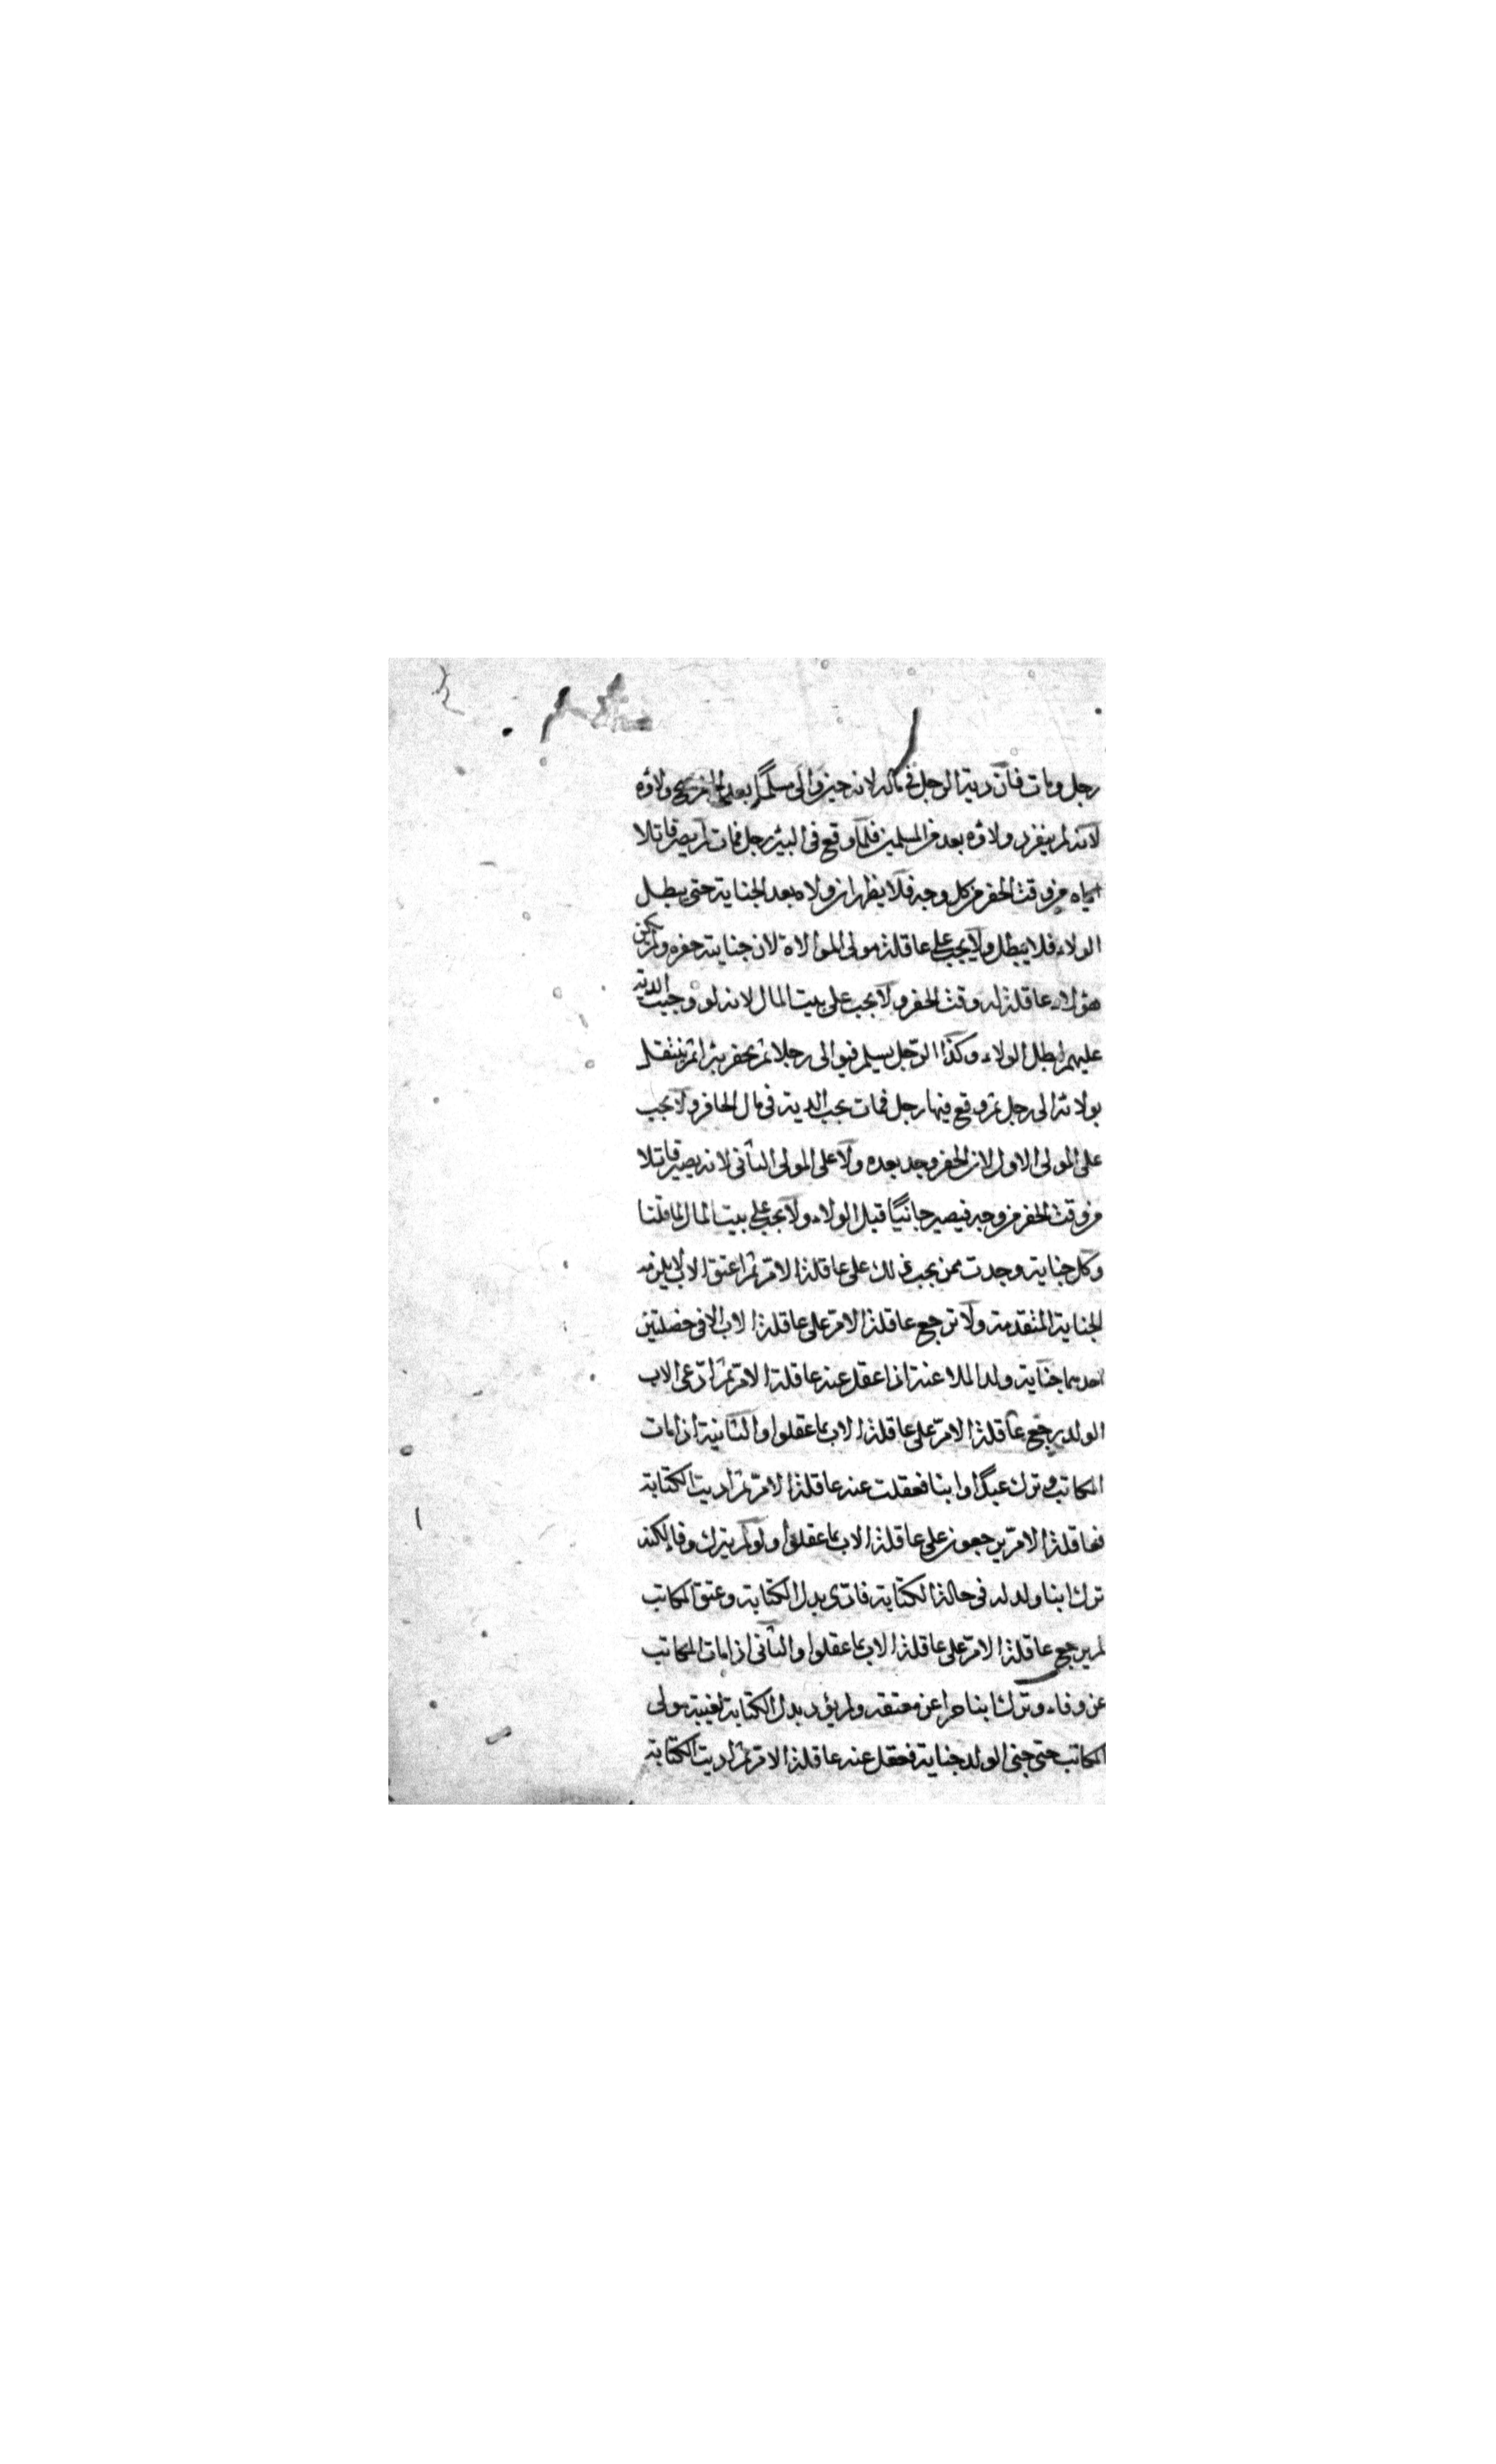 رجل ومات فان دية الرجل فى ماله لانه حين والى مسلما بعد الحفر صح ولاؤه
لانه لم ينفرد ولاؤه بعد من المسلمين فلما وقع فى البئر رجل فمات لم يصر قاتلا
اياه من وقت الحفر من كل وجه فلا يظهر ان ولاه بعد الجناية حتى يبطل
الولاء فلا يبطل ولا يجب على عاقلة مولى الموالاة لان جنايته حفره ولم يكن
هؤلاء عاقلة له وقت الحفر ولا يجب على بيت المال لانه لو وجبت الدية
عليهم لبطل الولاء وكذا الرجل يسلم فيوالى رجلا ثم يحفر بئرا ثم ينتقل
بولائه الى رجل ثم وقع فيها رجل فمات يجب الدية فى مال الحافر ولا يجب
على المولى الاول لان الحفر وجد بعده ولا على المولى الثانى لانه يصير قاتلا
من وقت الحفر من وجه فيصير جانيا قبل الولاء ولا يجب على بيت المال لما قلنا
وكل جناية وجدت ممن يجب ذلك على عاقلة الام ثم اعتق الاب لا يلزمه
الجناية المتقدمة ولا ترجع عاقلة الام على عاقلة الاب الا فى خصلتين
احديهما جناية ولد الملاعنة اذا عقل عنه عاقلة الام ثم ادعى الاب
الولد يرجع عاقلة الام على عاقلة الاب بما عقلوا والثانية اذا مات
المكاتب وترك عبدا وابنا فعقلت عنه عاقلة الام ثم اديت الكتابة
فعاقلة الام يرجعون على عاقلة الاب بما عقلوا ولو لم يترك وفاء لكنه
ترك ابنا ولد له فى حالة الكتابة فادى بدل الكتابة وعتق المكاتب
لم يرجع عاقلة الام على عاقلة الاب بما عقلوا والثانى اذا مات المكاتب
عن وفاء وترك ابنا حرا عن معتقه ولم يؤد بدل الكتابة لغيبة مولى
المكاتب حتى جنى الولد جناية فعقل عنه عاقلة الام ثم اديت الكتابة